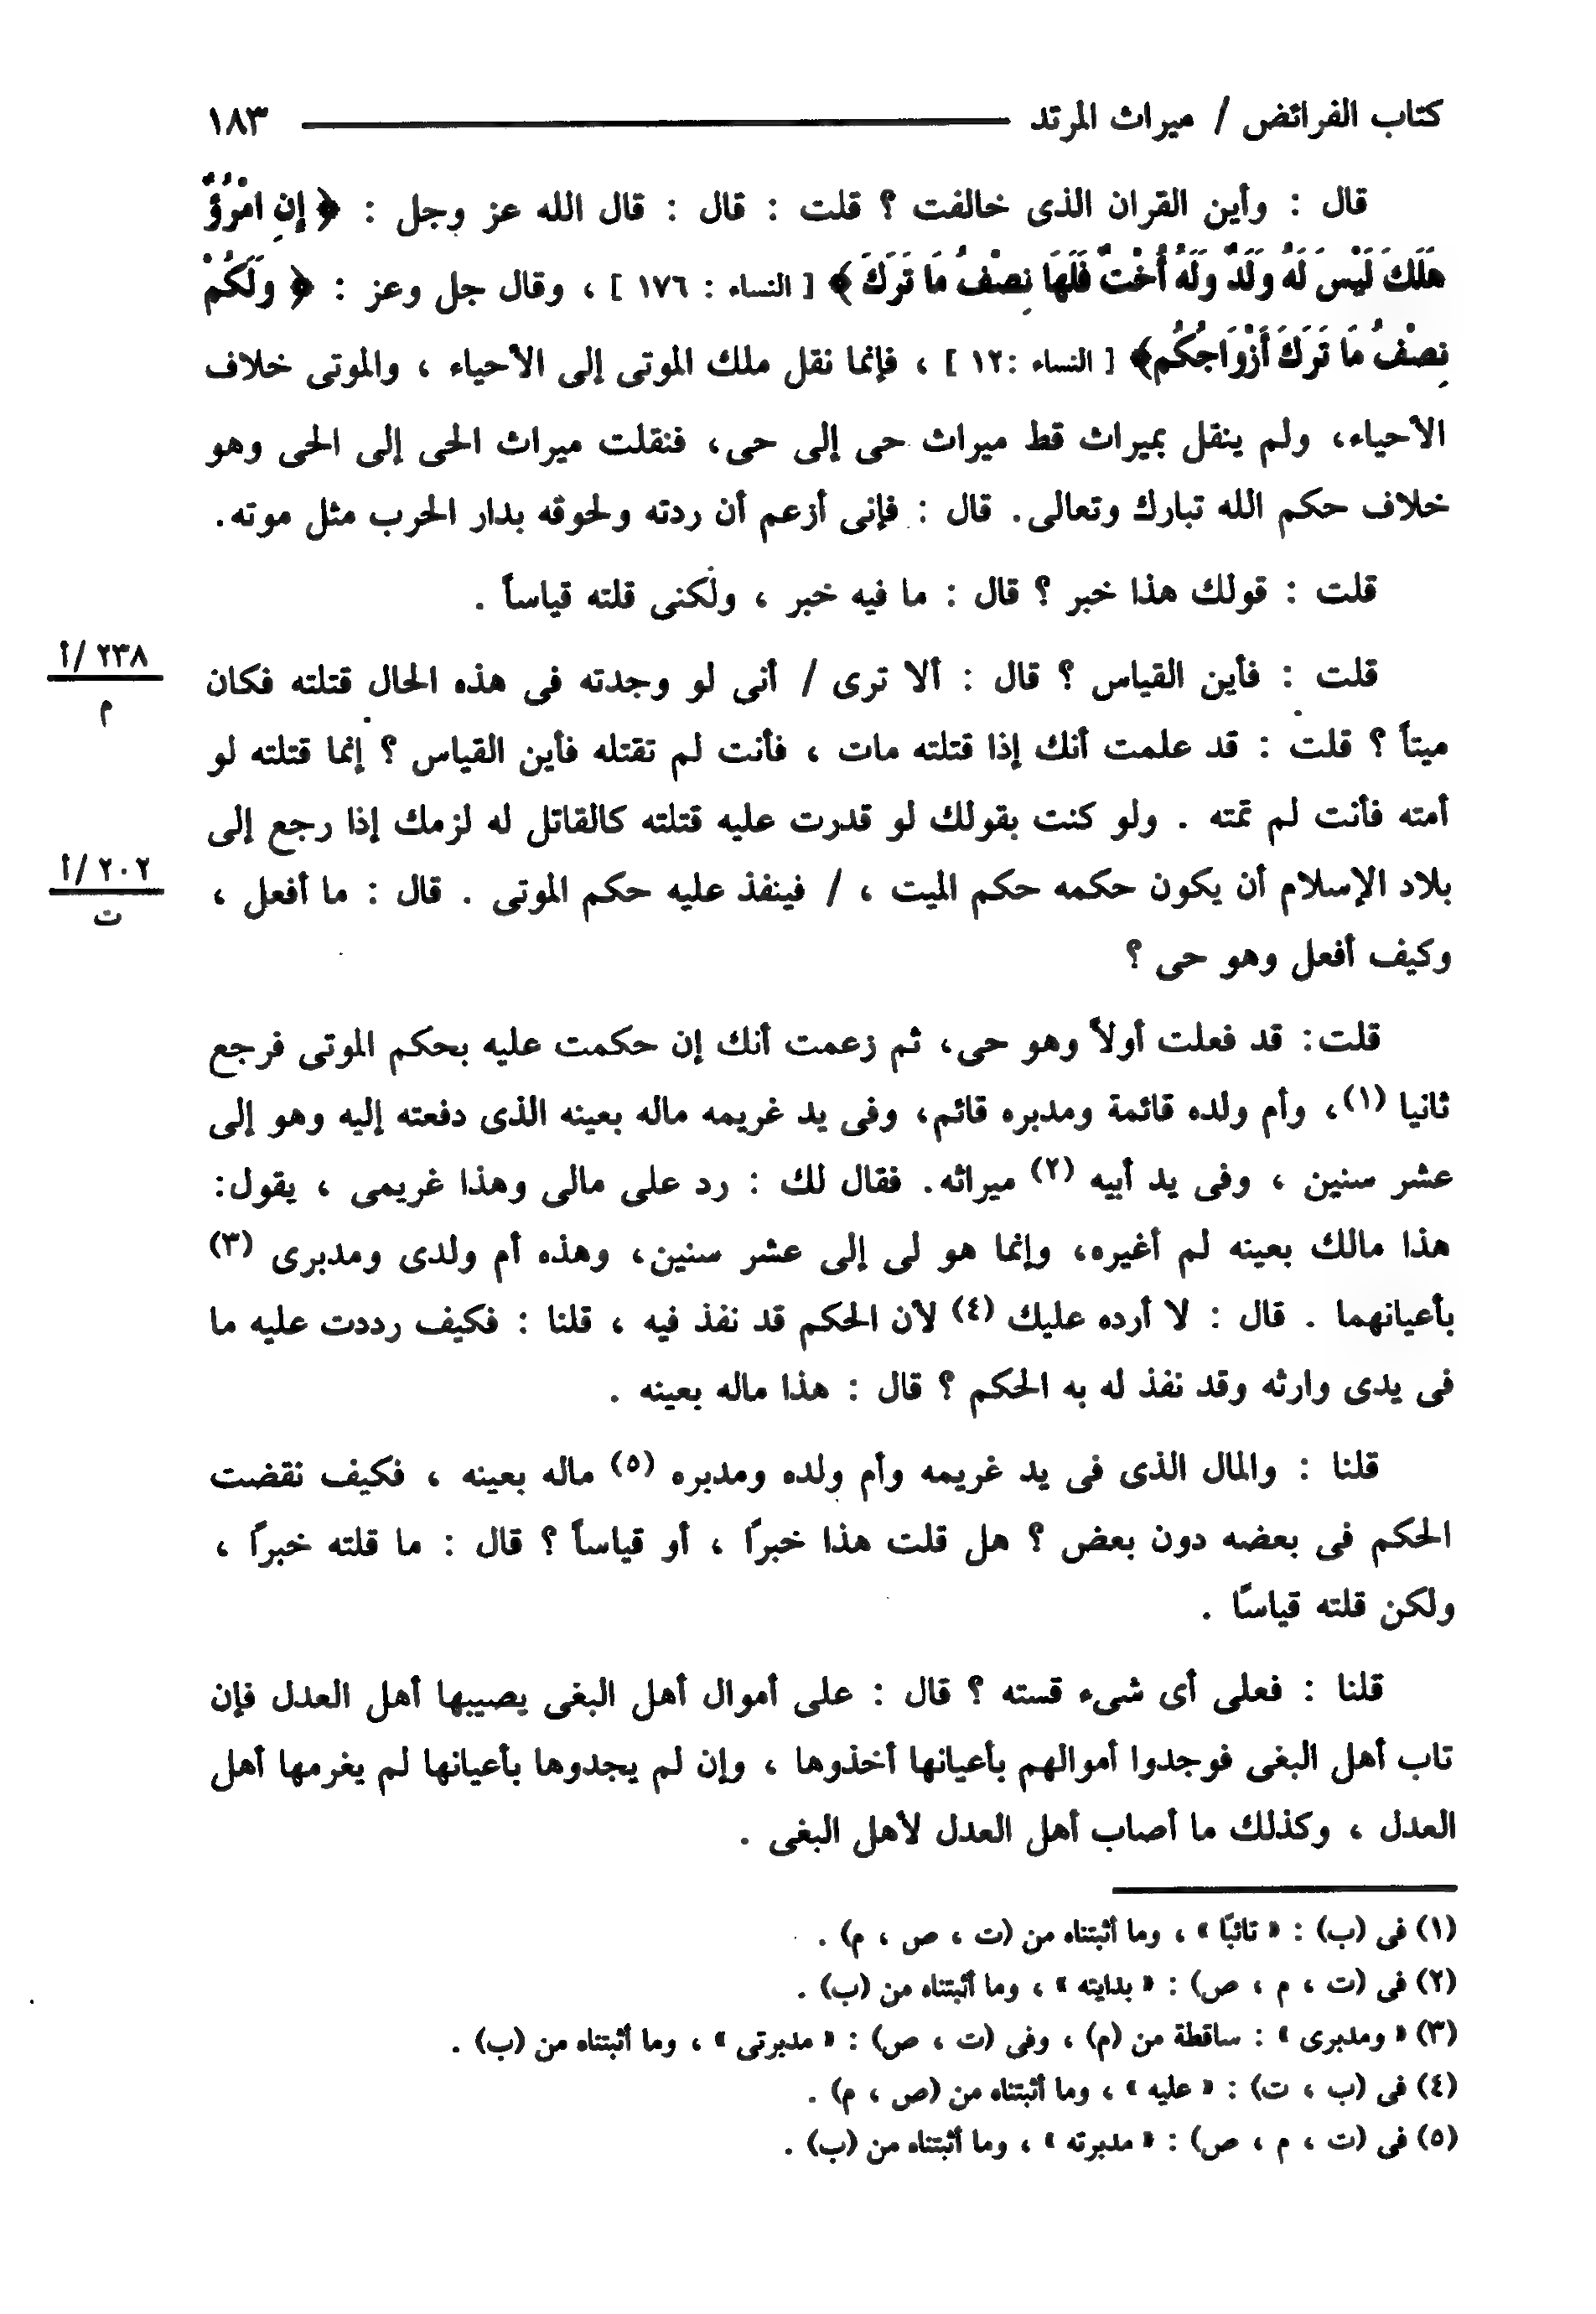 كتاب الفرائض / ميراث المرتد ١٨٣
قال : وأين القران الذى خالفت ؟ قلت : قال : قال الله عز وجل : ﴿ إِنِ امْرُؤٌ
هَلَكَ لَيْسَ لَهُ وَلَدٌ وَلَهُ أُخْتٌ فَلَهَا نِصْفُ مَا تَرَكَ ﴾ [ النساء : ١٧٦ ] ، وقال جل وعز : ﴿ وَلَكُمْ
نِصْفُ مَا تَرَكَ أَزْوَاجُكُم﴾ [ النساء :١٢ ] ، فإنما نقل ملك الموتى إلى الأحياء ، والموتى خلاف
الأحياء، ولم ينقل بميراث قط ميراث حى إلى حى، فنقلت ميراث الحى إلى الحى وهو
خلاف حكم الله تبارك وتعالى. قال : فإنى أزعم أن ردته ولحوقه بدار الحرب مثل موته.
قلت : قولك هذا خبر ؟ قال : ما فيه خبر ، ولكنى قلته قياساً .
قلت : فأين القياس ؟ قال : ألا ترى / أنى لو وجدته فى هذه الحال قتلته فكان
٢٣٨ /أ
م
ميتاً ؟ قلت : قد علمت أنك إذا قتلته مات ، فأنت لم تقتله فأين القياس ؟ إنما قتلته لو
أمته فأنت لم تمته . ولو كنت بقولك لو قدرت عليه قتلته كالقاتل له لزمك إذا رجع إلى
بلاد الإسلام أن يكون حكمه حكم الميت ، / فينفذ عليه حكم الموتى . قال : ما أفعل ،
٢٠٢ /أ
ت
وكيف أفعل وهو حى ؟
قلت: قد فعلت أولاً وهو حى، ثم زعمت أنك إن حكمت عليه بحكم الموتى فرجع
ثانيا (١)، وأم ولده قائمة ومدبره قائم، وفى يد غريمه ماله بعينه الذى دفعته إليه وهو إلى
عشر سنين ، وفى يد أبيه (٢) ميراثه. فقال لك : رد على مالى وهذا غريمى ، يقول:
هذا مالك بعينه لم أغيره، وإنما هو لى إلى عشر سنين، وهذه أم ولدى ومدبرى (٣)
بأعيانهما . قال : لا أرده عليك (٤) لأن الحكم قد نفذ فيه ، قلنا : فكيف رددت عليه ما
فى يدى وارثه وقد نفذ له به الحكم ؟ قال : هذا ماله بعينه .
قلنا : والمال الذى فى يد غريمه وأم ولده ومدبره (٥) ماله بعينه ، فكيف نقضت
الحكم فى بعضه دون بعض ؟ هل قلت هذا خبرًا ، أو قياساً ؟ قال : ما قلته خبرًا ،
ولكن قلته قياسًا .
قلنا : فعلى أى شىء قسته ؟ قال : على أموال أهل البغى يصيبها أهل العدل فإن
تاب أهل البغى فوجدوا أموالهم بأعيانها أخذوها ، وإن لم يجدوها بأعيانها لم يغرمها أهل
العدل ، وكذلك ما أصاب أهل العدل لأهل البغى .
(١) فى (ب) : « تائبًا » ، وما أثبتناه من (ت ، ص ، م) .
(٢) فى (ت ، م ، ص) : « بدايته » ، وما أثبتناه من (ب) .
(٣) « ومدبرى » : ساقطة من (م) ، وفى (ت ، ص) : « مدبرتى » ، وما أثبتناه من (ب) .
(٤) فى (ب ، ت) : « عليه » ، وما أثبتناه من (ص ، م) .
(٥) فى (ت ، م ، ص) : « مدبرته » ، وما أثبتناه من (ب) .